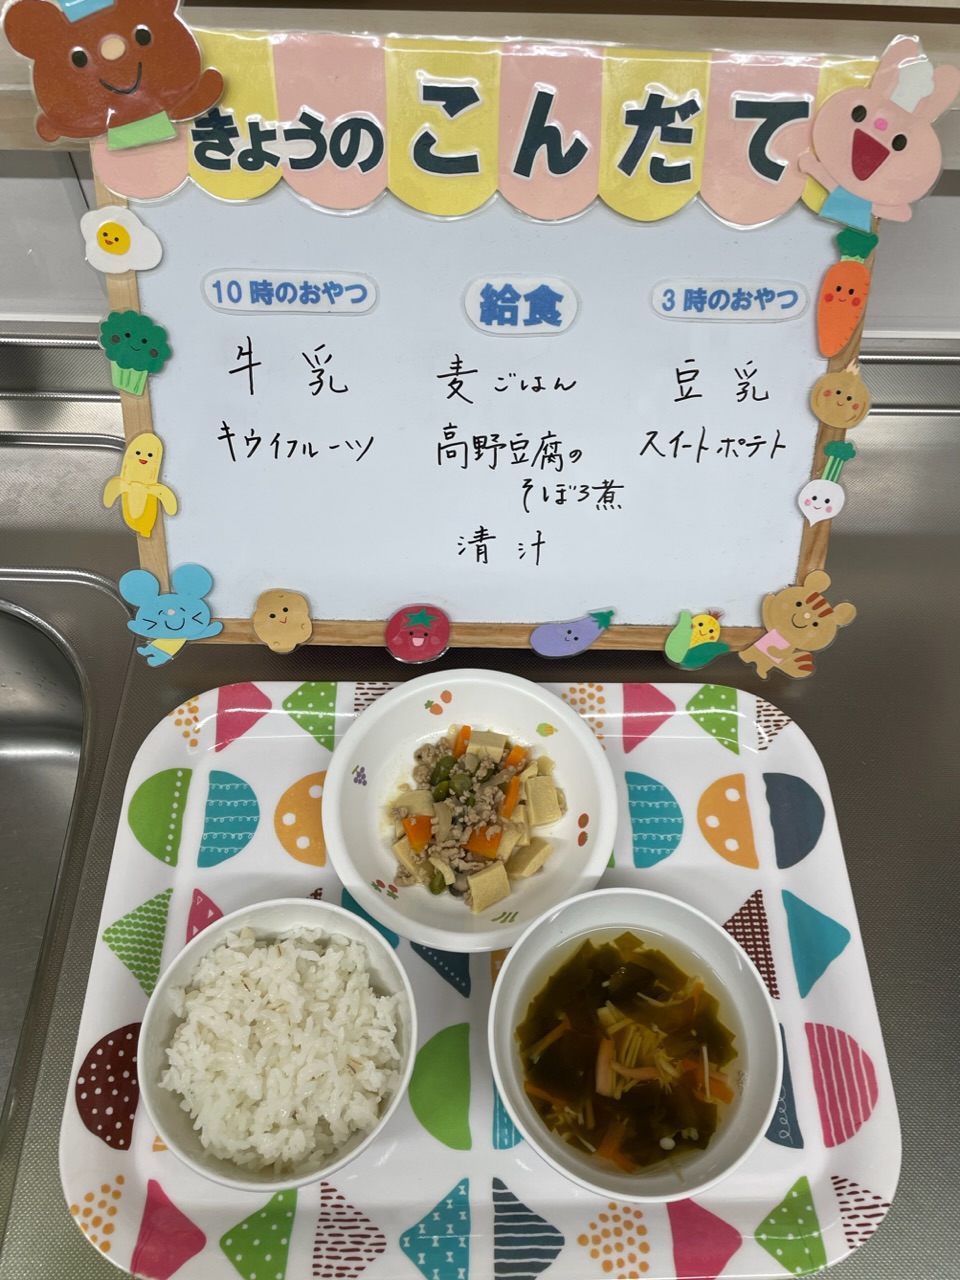 きょうのこんだて
10時のおやつ
牛乳
キウイフルーツ
給食
麦ごはん
高野豆腐の
そぼろ煮
清汁
3時のおやつ
豆乳
スイートポテト